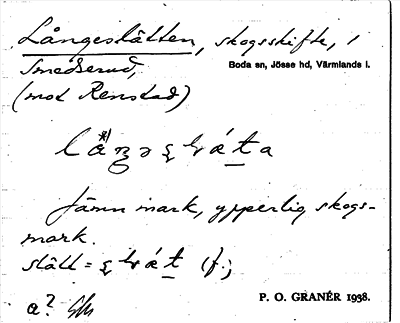 Långeslätten, skogsskifte, i
Smedserud,
Boda sn, Jösse hd, Värmlands l.
(mot Renstad)
Jämn mark, ypperlig skogs-
mark.
slätt = (f.;
a?
P. O. GRANÉR 1938.